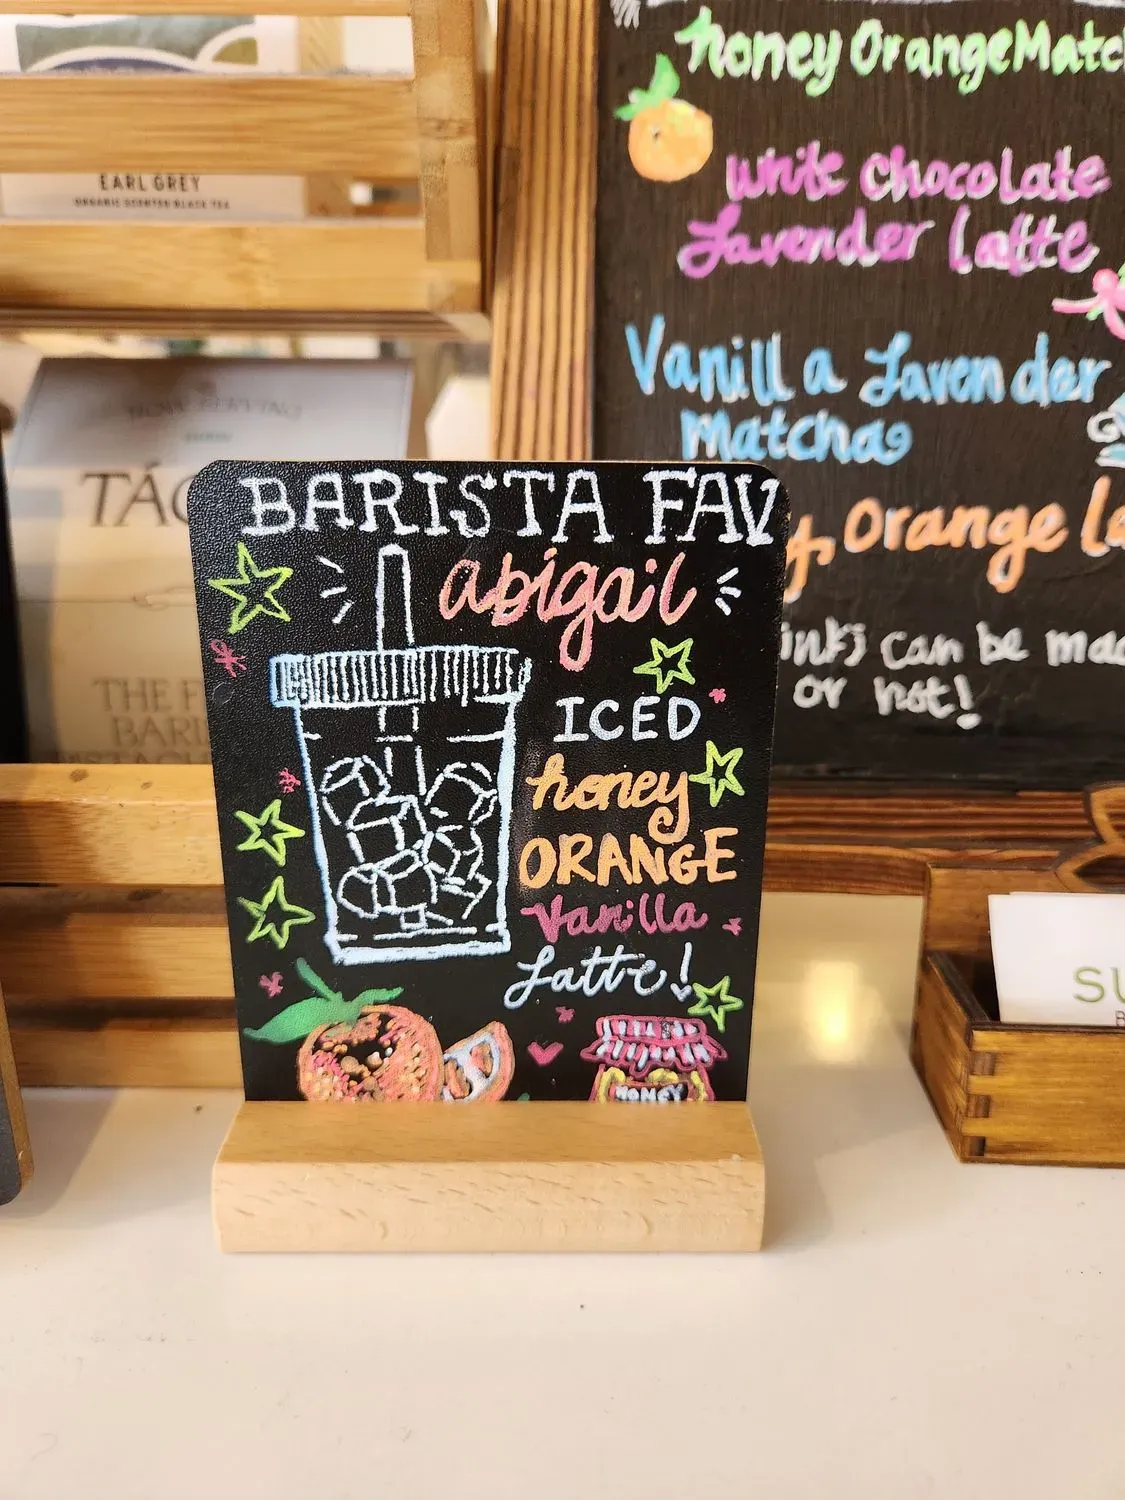 EARL GREY
ORGANIC SCENTED BLACK TEA
honey Orange Matc
white chocolate
Lavender latte
Vanilla Lavender
matcha
Orange la
can be mad
or hot!
BARISTA FAV
abigail
ICED
honey
ORANGE
Vanilla
Latte!
HONEY
NOW SERVING
TÁC
THE F
BARI
SU